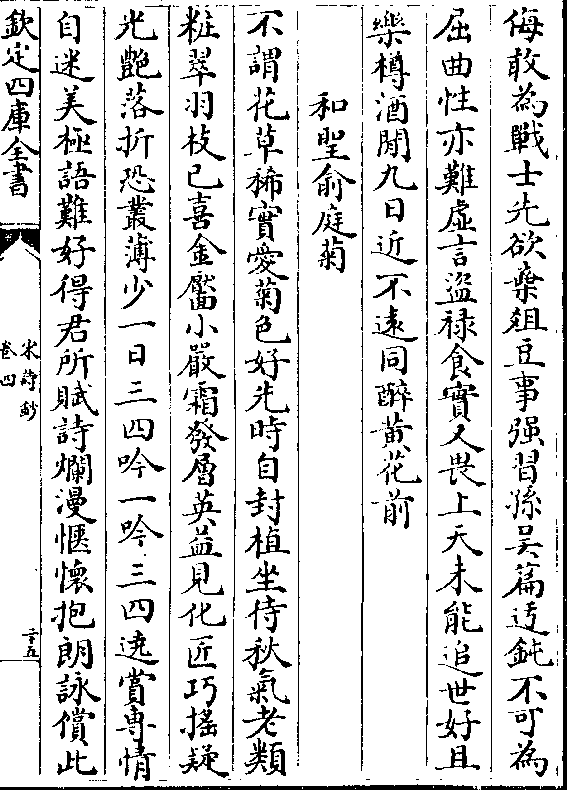 侮敢為戰士先欲棄俎豆事强習孫吳篇迃鈍不可為
屈曲性亦難虛言盜禄食實又畏上天未能追世好且
樂樽酒閒九日近不遠同醉黄花前
和聖俞庭菊
不謂花草稀實愛菊色好先時自封植坐待秋氣老類
粧翠羽枝已喜金靨小嚴霜發層英益見化匠巧搖疑
光艷落折恐叢薄少一日三四吟一吟三四遶賞専情
自迷美極語難好得君所賦詩爛漫愜懷抱朗詠償此
欽定四庫全書
宋詩鈔
卷四
二十五